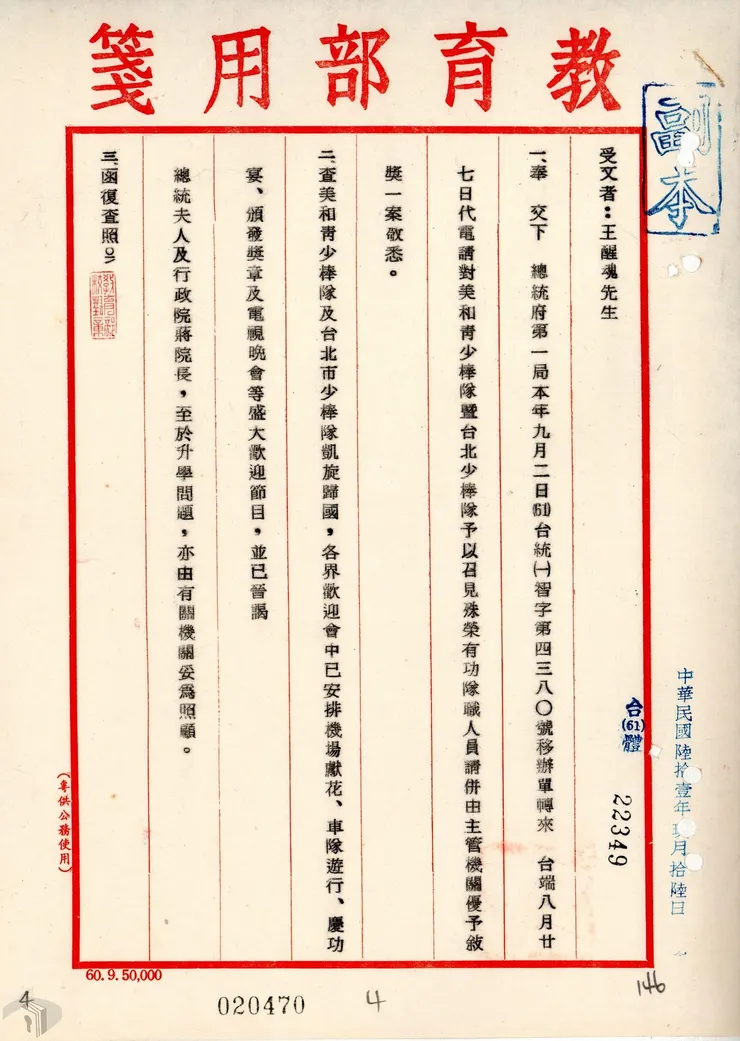 教育部用箋
副本
中華民國陸拾壹年玖月拾陸日
台(61)體
22349
受文者：王醒魂先生
一、奉　交下　總統府第一局本年九月二日(61)台統㈠智字第四三八〇號移辦單轉來　台端八月廿
七日代電請對美和青少棒隊暨台北少棒隊予以召見殊榮有功隊職人員請併由主管機關優予敘
獎一案敬悉。
二、查美和青少棒隊及台北市少棒隊凱旋歸國，各界歡迎會中已安排機場獻花、車隊遊行、慶功
宴、頒發獎章及電視晚會等盛大歡迎節目，並已晉謁
總統夫人及行政院蔣院長，至於升學問題，亦由有關機關妥為照顧。
三、函復查照。
（專供公務使用）
60. 9. 50,000
020470
4
4
146